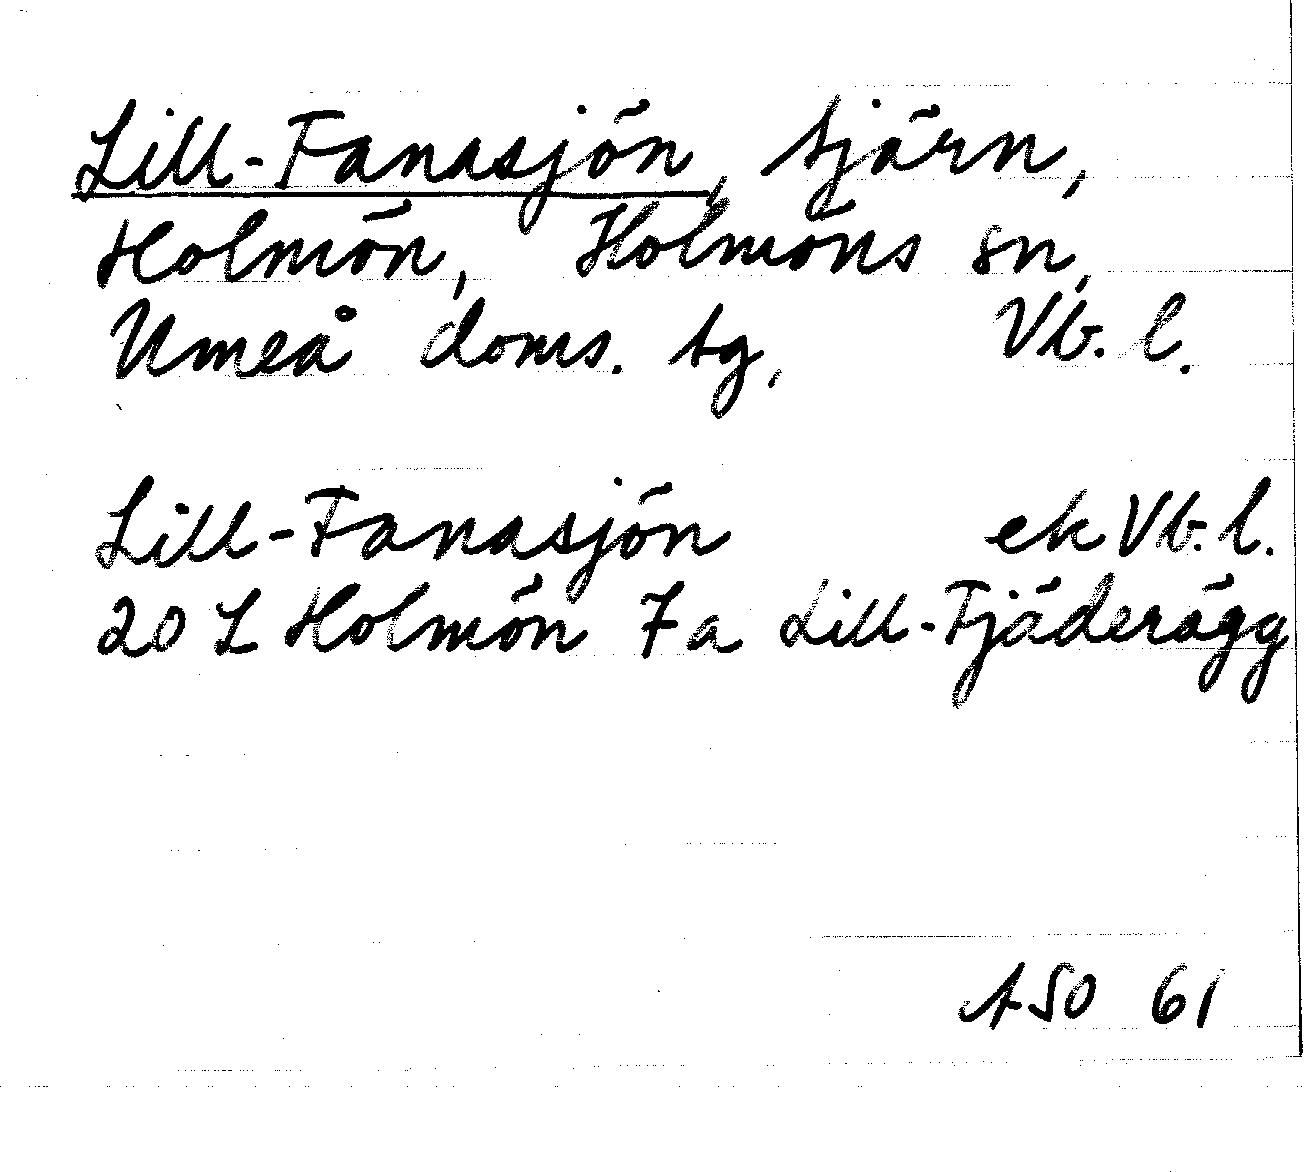 Lill-Fanasjön, tjärn,
Holmön, Holmöns sn,
Umeå doms. tg, Vb. l.
Lill-Fanasjön ek Vb. l.
20 L Holmön 7a Lill-Fjäderägg
ASO 61